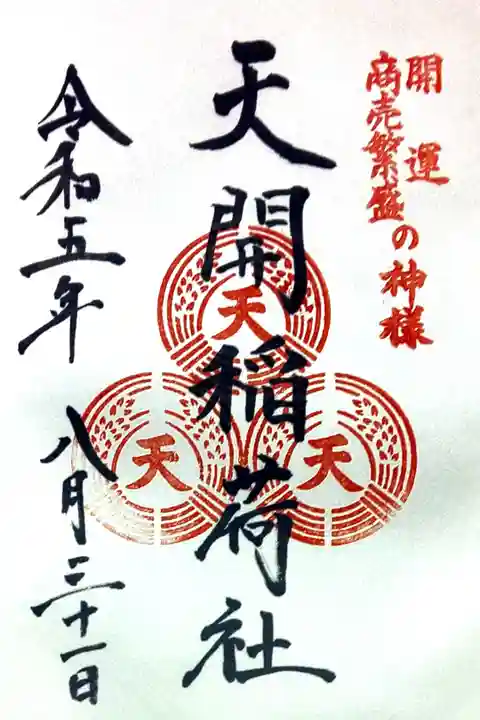 開運
商売繁盛の神様
天開稲荷社
天
天
天
令和五年
八月三十一日